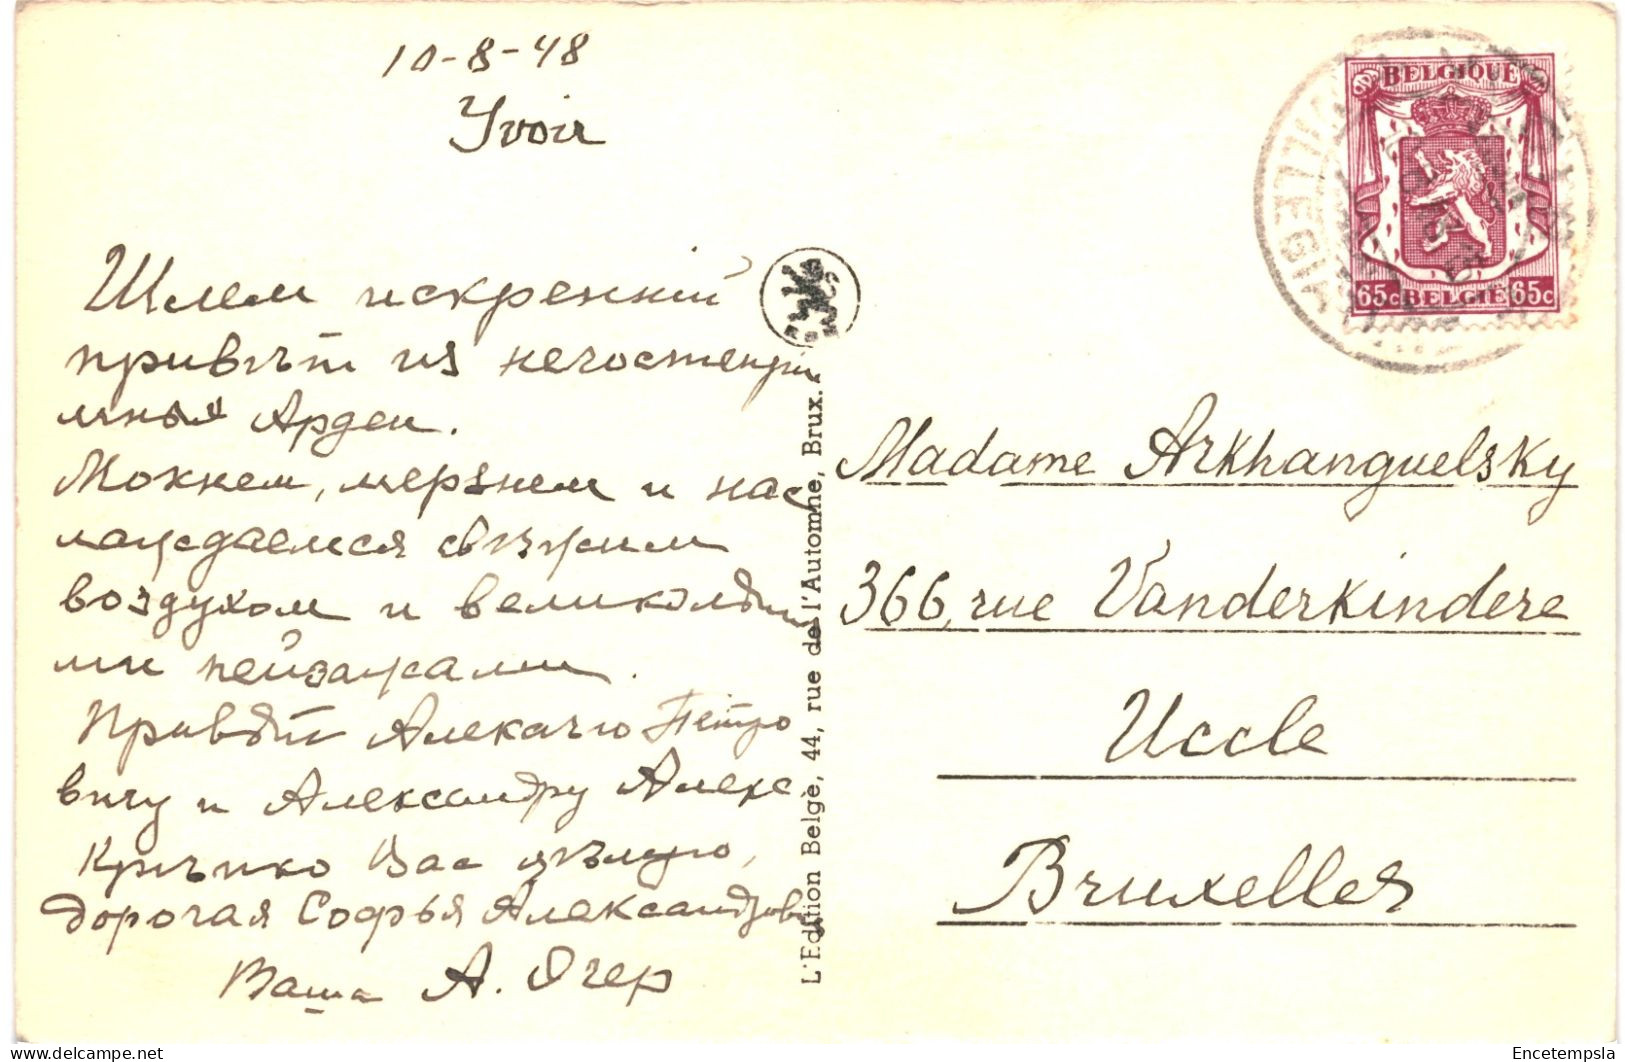 10-8-48
Yvoir
Шлем искренний
привѣт из негостепри
мных Арден.
Мокнем, мерзнем и нас
лаждаемся свѣжим
воздухом и великолѣпны
ми пейзажами.
Привѣт Петро
вичу и Александру Алекс.
Крѣпко Вас цѣлую,
дорогая Софья Александровна
Ваша А. Ягер
L'Edition Belge, 44, rue de l'Automne, Brux.
BELGIQUE
65c BELGIE 65c
Madame Arkhanguelsky
366, rue Vanderkindere
Uccle
Bruxelles
www.delcampe.net
Encetempsla